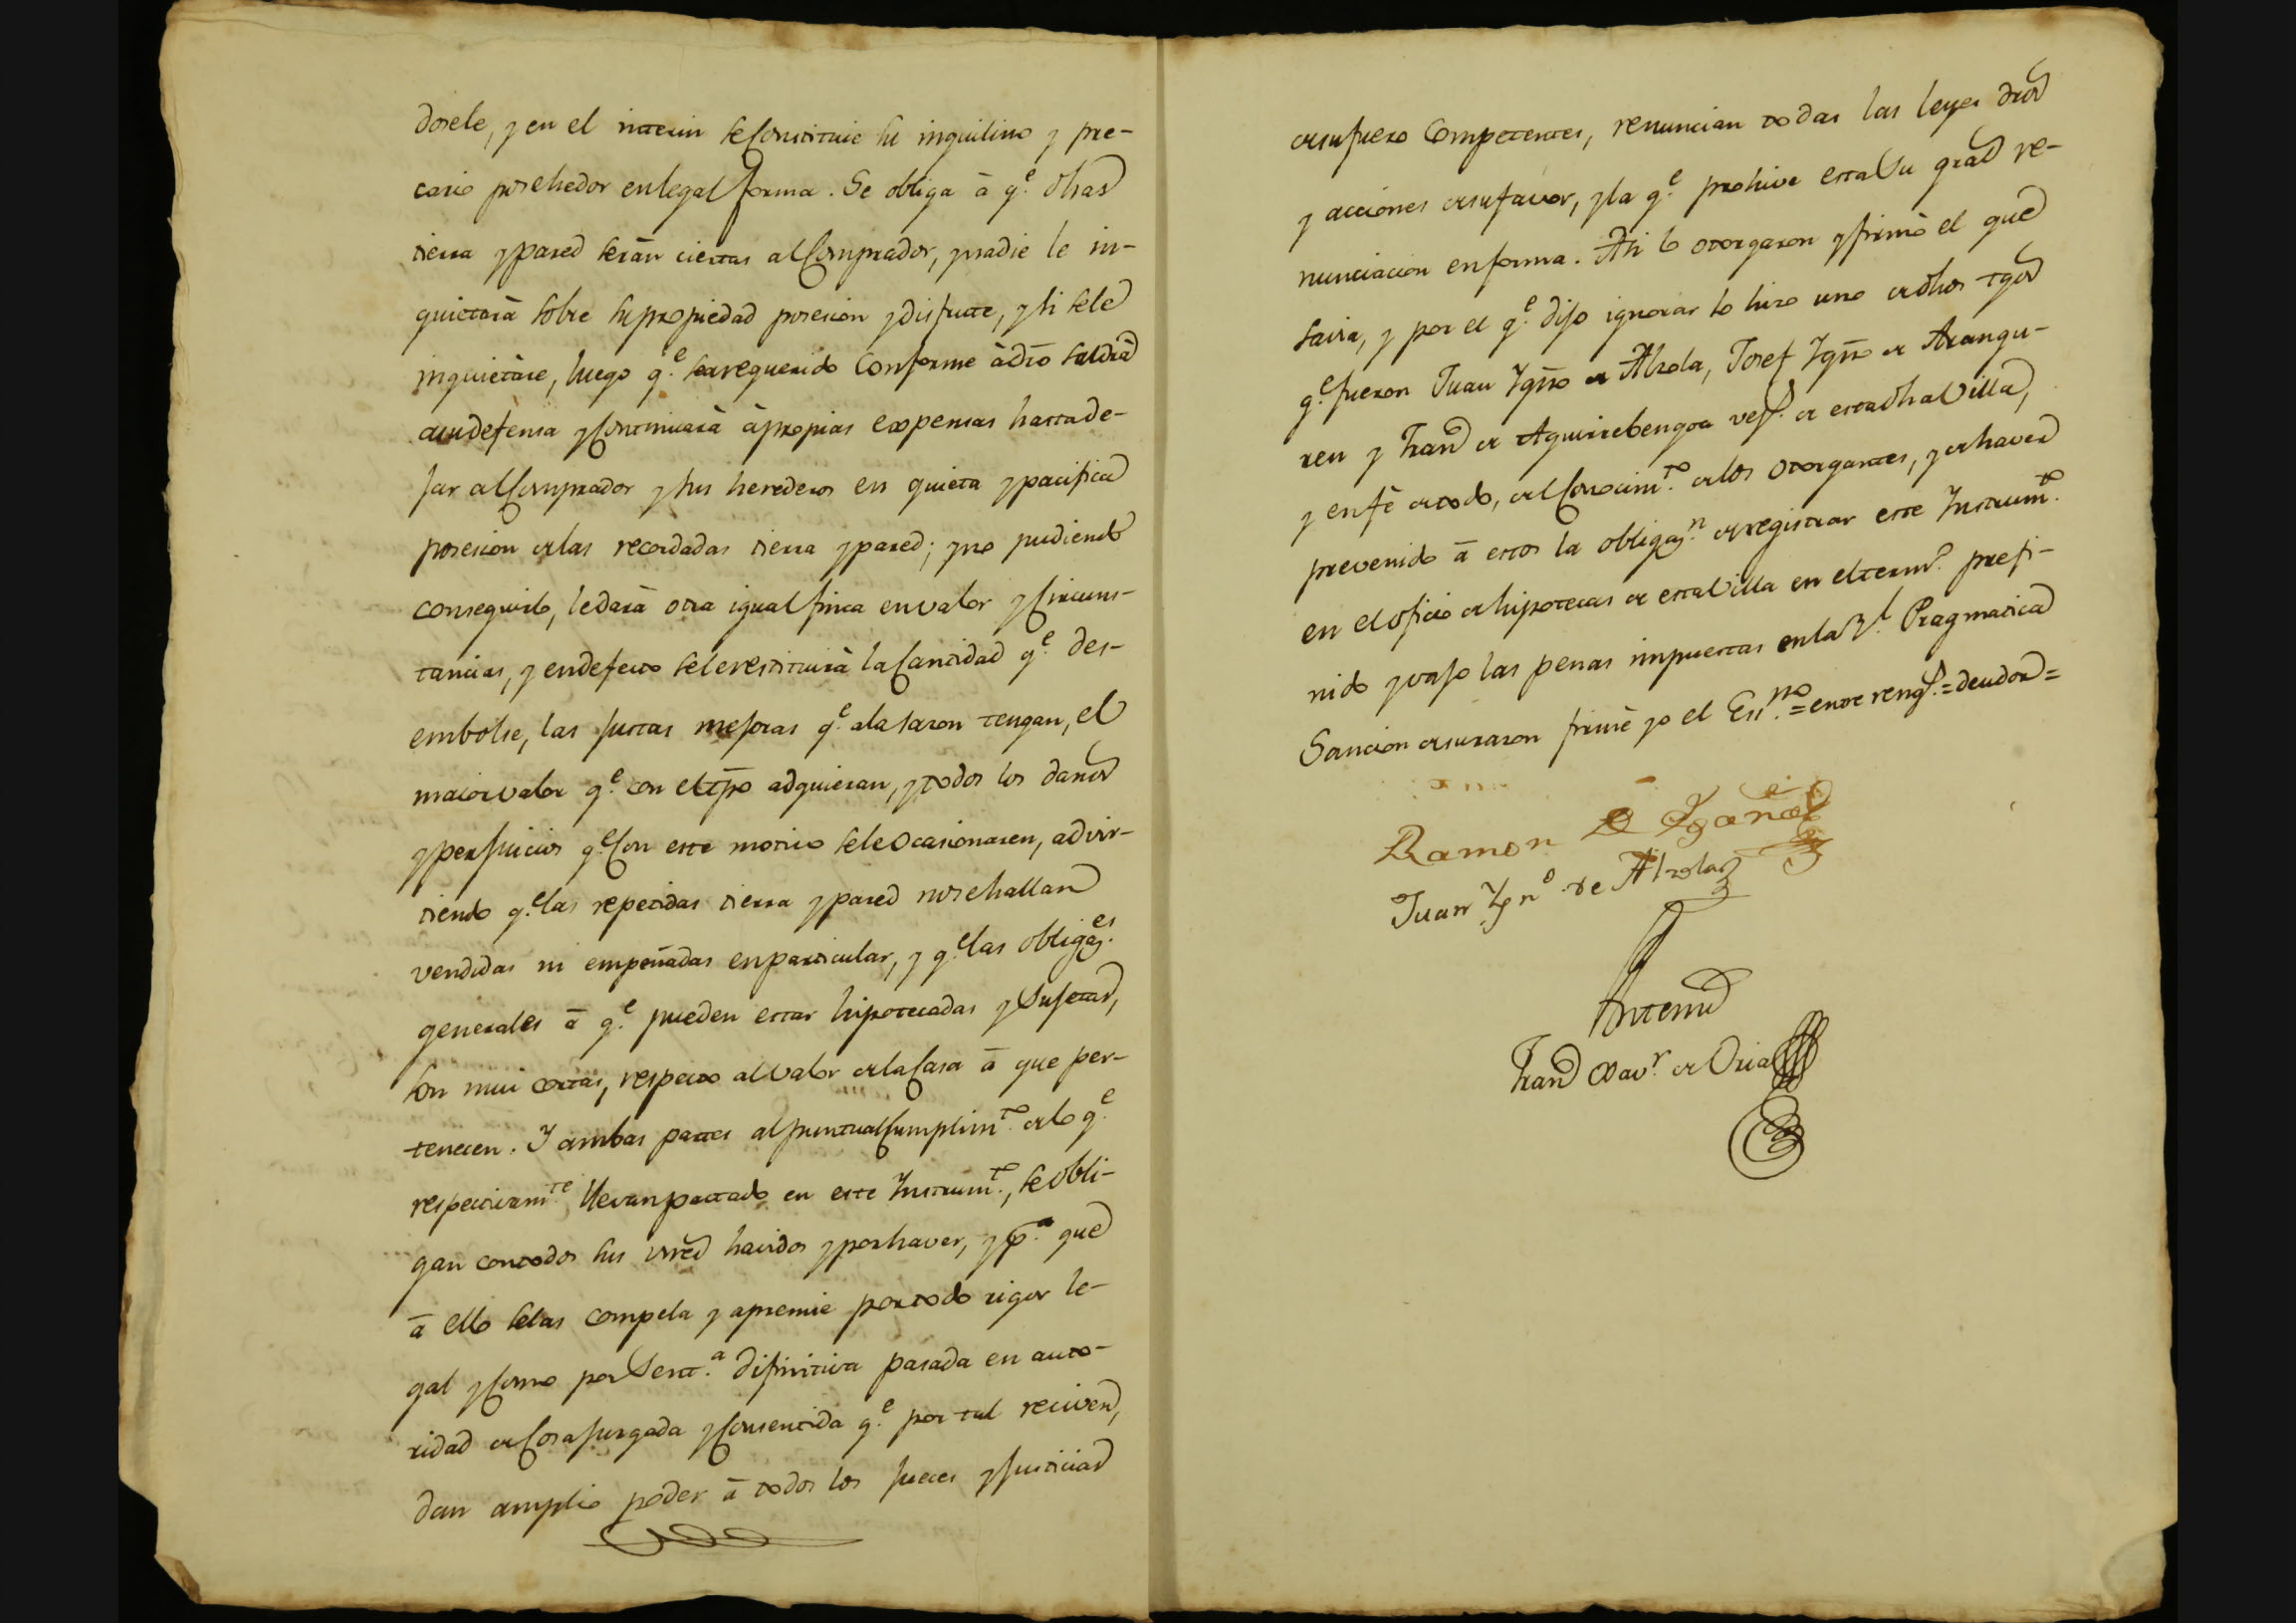 dosele, y en el interin se Constituie su inquilino y pre-
cario posehedor en legal forma. Se obliga à q.e dhas
tierra y pared seràn ciertas al Comprador, y nadie le in-
quietarà sobre su propiedad posesion y disfrute, y si sele
inquietàre, luego q.e sea requerido Conforme à dro saldrà
a su defensa y Continuarà à propias expensas hasta de-
jar al Comprador y sus herederos en quieta y pacifica
posesion de las recordadas tierra y pared; y no pudiendo
conseguirlo, le darà otra igual finca en valor y Circuns-
tancias, y en defecto se le restituirà la Cantidad q.e des-
embolse, las justas mejoras q.e a la sazon tengan, el
maior valor q.e con el tpo adquieran, y todos los danos
y perjuicios q.e Con este motivo se le Ocasionaren, advir-
tiendo q.e las repetidas tierra y pared no se hallan
vendidas ni empeñadas en particular, y q.e las obligaz.es
generales à q.e pueden estar hipotecadas y Sujetas,
son mui cortas, respecto al valor de la Casa à que per-
tenecen. Y ambas partes al puntual Cumplim.to de lo q.e
respectivam.te llevan pactado en este Instrum.to, se obli-
gan con todos sus vnes havidos y por haver, y p.a que
à ello se las compela y apremie por todo rigor le-
gal y Como por Sent.a difinitiva pasada en auto-
ridad de Cosa juzgada y Consentida q.e por tal reciven,
dan amplio poder à todos los jueces y justicias
de su fuero Competentes, renuncian todas las leyes dros
y acciones de su favor, y la q.e prohive esta Su gral re-
nunciacion en forma. Asi lo otorgaron y firmò el que
savia, y por el q.e dijo ignorar lo hizo uno de dhos tgos
q.e fueron Juan Ygno de Alzola, Josef Ygno de Arangu-
ren y Fran.co de Aguirrebengoa vez.s de esta dha Villa,
y en fè de todo, del Conocim.to de los otorgantes, y de haver
prevenido à estos la obligaz.n de registrar este Instrum.to
en el oficio de hipotecas de esta Villa en el term.o prefi-
nido y vajo las penas impuestas en la R.l Pragmatica
Sancion de su razon firmè yo el Ess.no = entre reng.s = deudor =
Ramon de Ygañe
Juan Ygn.o de Alzola
Antemi
Fran.co Xav.r de Oria